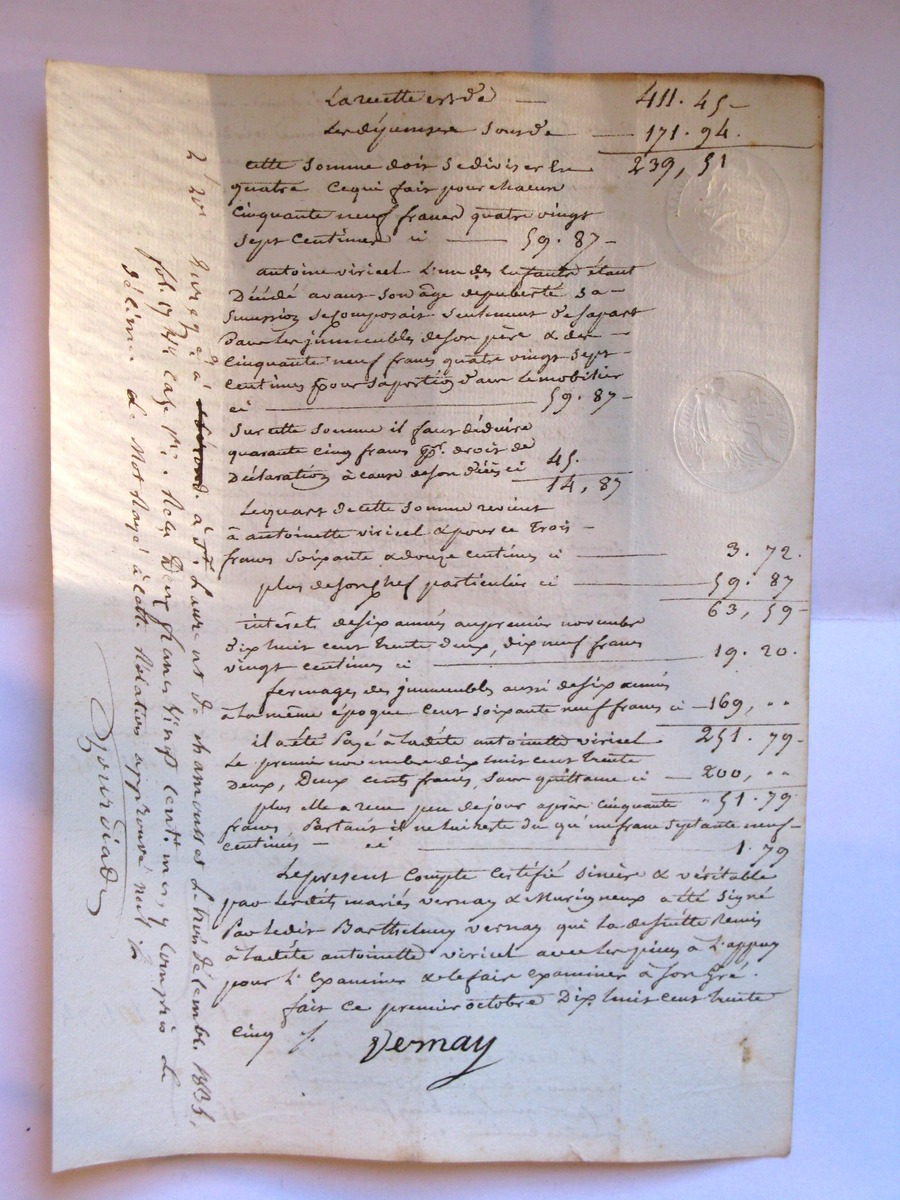 La recette est de — 411. 45 –
Les dépenses sont de — 171. 94.
cette somme doit se diviser En 239, 51
quatre ce qui fait pour chacun
Cinquante neuf francs quatre vingt
sept Centimes ci — 59. 87 –
antoine viricel L'un des Enfants étant
Décédé avant son âge de puberté sa
Succession se composait seulement de sa part
Dans les immeubles de son père & des
Cinquante neuf francs quatre vingt sept
centimes pour sa portion dans le mobilier
ci — 59. 87 –
Sur cette somme il faut déduire
quarante cinq francs pr. droit de
Déclaration à cause de son décès ci 45.
14, 87
Le quart de cette somme revient
à antoinette viricel & pour ce Trois –
francs soixante & douze centimes ci — 3. 72.
plus de son chef particulier ci — 59. 87
63, 59 –
intérêts de six années au premier novembre
Dix huit cent trente deux, dix neuf francs
vingt centimes ci — 19. 20.
fermages des immeubles aussi de six années
à la même époque Cent soixante neuf francs ci – 169, ..
il a été Payé à la dite antoinette viricel 251. 79 –
Le premier novembre dix huit cent trente
deux, Deux cents francs, sans quittance ci — 200, ..
plus elle a reçu peu de jour après cinquante " 51. 79
francs, Partant il ne lui reste du qu'un franc septante neuf –
centimes – ci — 1. 79
Le present Compte Certifié sincère & véritable
par les dits mariés vernay & Murigneux a été signé
Par ledit Barthelemy vernay qui la de suitte Remis
à la dite antoinette viricel avec les pièces à L'appuy
pour L'Examiner & le faire examiner à son Gré.
fait ce premier octobre Dix huit cent trente
cinq /.
Vernay
Enregé. à à St. Laurent de chamousset le trois décembre 1835,
fol. 17 Vo. case 1re. Reçu Deux francs vingt centimes, y compris le
décime. Le Mot Rayé à cette Relation approuvé nul